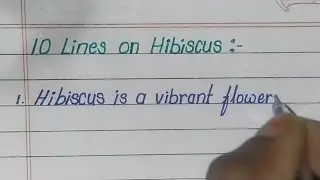 10 Lines on Hibiscus :-
1. Hibiscus is a vibrant flower